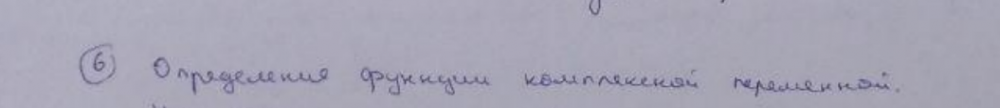 ⑥ Определения функции комплексной переменной.